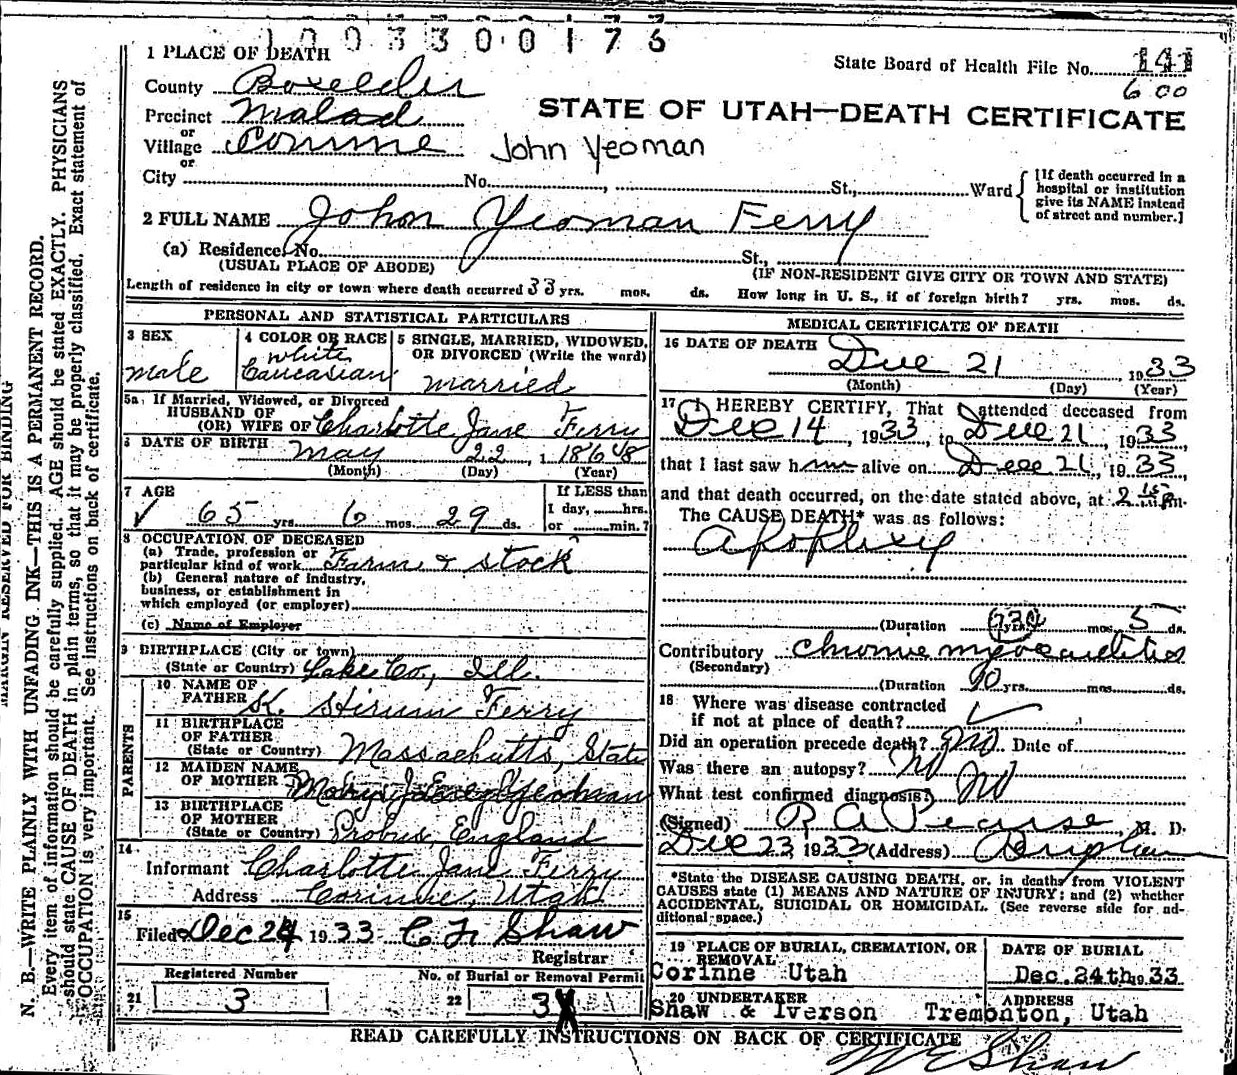 1003300176
1 PLACE OF DEATH
State Board of Health File No. 141
600
County Boxelder
STATE OF UTAH—DEATH CERTIFICATE
Precinct Malad
or
Village Corinne
John Yeoman
or
City No. , St., Ward
[If death occurred in a hospital or institution give its NAME instead of street and number.]
2 FULL NAME John Yeoman Ferry
(a) Residence, No. St.,
(USUAL PLACE OF ABODE) (IF NON-RESIDENT GIVE CITY OR TOWN AND STATE)
Length of residence in city or town where death occurred 33 yrs. mos. ds. How long in U. S., if of foreign birth? yrs. mos. ds.
PERSONAL AND STATISTICAL PARTICULARS
3 SEX
male
4 COLOR OR RACE
white
Caucasian
5 SINGLE, MARRIED, WIDOWED, OR DIVORCED (Write the word)
married
5a If Married, Widowed, or Divorced
HUSBAND OF
(OR) WIFE OF Charlotte Jane Ferry
6 DATE OF BIRTH May 22, 1868
(Month) (Day) (Year)
7 AGE
65 yrs. 6 mos. 29 ds.
If LESS than
1 day, hrs.
or min.?
8 OCCUPATION OF DECEASED
(a) Trade, profession or
particular kind of work Farm & stock
(b) General nature of industry,
business, or establishment in
which employed (or employer)
(c) Name of Employer
9 BIRTHPLACE (City or town)
(State or Country) Lake Co., Ill.
PARENTS
10 NAME OF
FATHER Ferry
11 BIRTHPLACE
OF FATHER
(State or Country) Massachutts, State
12 MAIDEN NAME
OF MOTHER Mary
13 BIRTHPLACE
OF MOTHER
(State or Country) Probus, England
14
Informant Charlotte Jane Ferry
Address Corinne, Utah
15
Filed Dec 24 1933 C F Shaw
Registrar
Registered Number
21 3
No. of Burial or Removal Permit
22 3
MEDICAL CERTIFICATE OF DEATH
16 DATE OF DEATH Dec 21 1933
(Month) (Day) (Year)
17 I HEREBY CERTIFY, That I attended deceased from
Dec 14, 1933, to Dec 21, 1933,
that I last saw him alive on Dec 21, 1933,
and that death occurred, on the date stated above, at 2 15 pm.
The CAUSE DEATH* was as follows:
Apoplexy
(Duration yrs. mos. 5 ds.
Contributory chronic myocarditis
(Secondary)
(Duration 10 yrs. mos. ds.
18 Where was disease contracted
if not at place of death?
Did an operation precede death? no Date of
Was there an autopsy? no
What test confirmed diagnosis? no
(Signed) R A Pearse, M. D.
Dec 23 1933 (Address)
*State the DISEASE CAUSING DEATH, or, in deaths from VIOLENT
CAUSES state (1) MEANS AND NATURE OF INJURY; and (2) whether
ACCIDENTAL, SUICIDAL OR HOMICIDAL. (See reverse side for ad-
ditional space.)
19 PLACE OF BURIAL, CREMATION, OR
REMOVAL
Corinne Utah
DATE OF BURIAL
Dec. 24th 1933
20 UNDERTAKER
Shaw & Iverson
ADDRESS
Tremonton, Utah
READ CAREFULLY INSTRUCTIONS ON BACK OF CERTIFICATE
W E Shaw
MARGIN RESERVED FOR BINDING
N. B.—WRITE PLAINLY WITH UNFADING INK—THIS IS A PERMANENT RECORD.
Every item of information should be carefully supplied. AGE should be stated EXACTLY. PHYSICIANS
should state CAUSE OF DEATH in plain terms, so that it may be properly classified. Exact statement of
OCCUPATION is very important. See instructions on back of certificate.